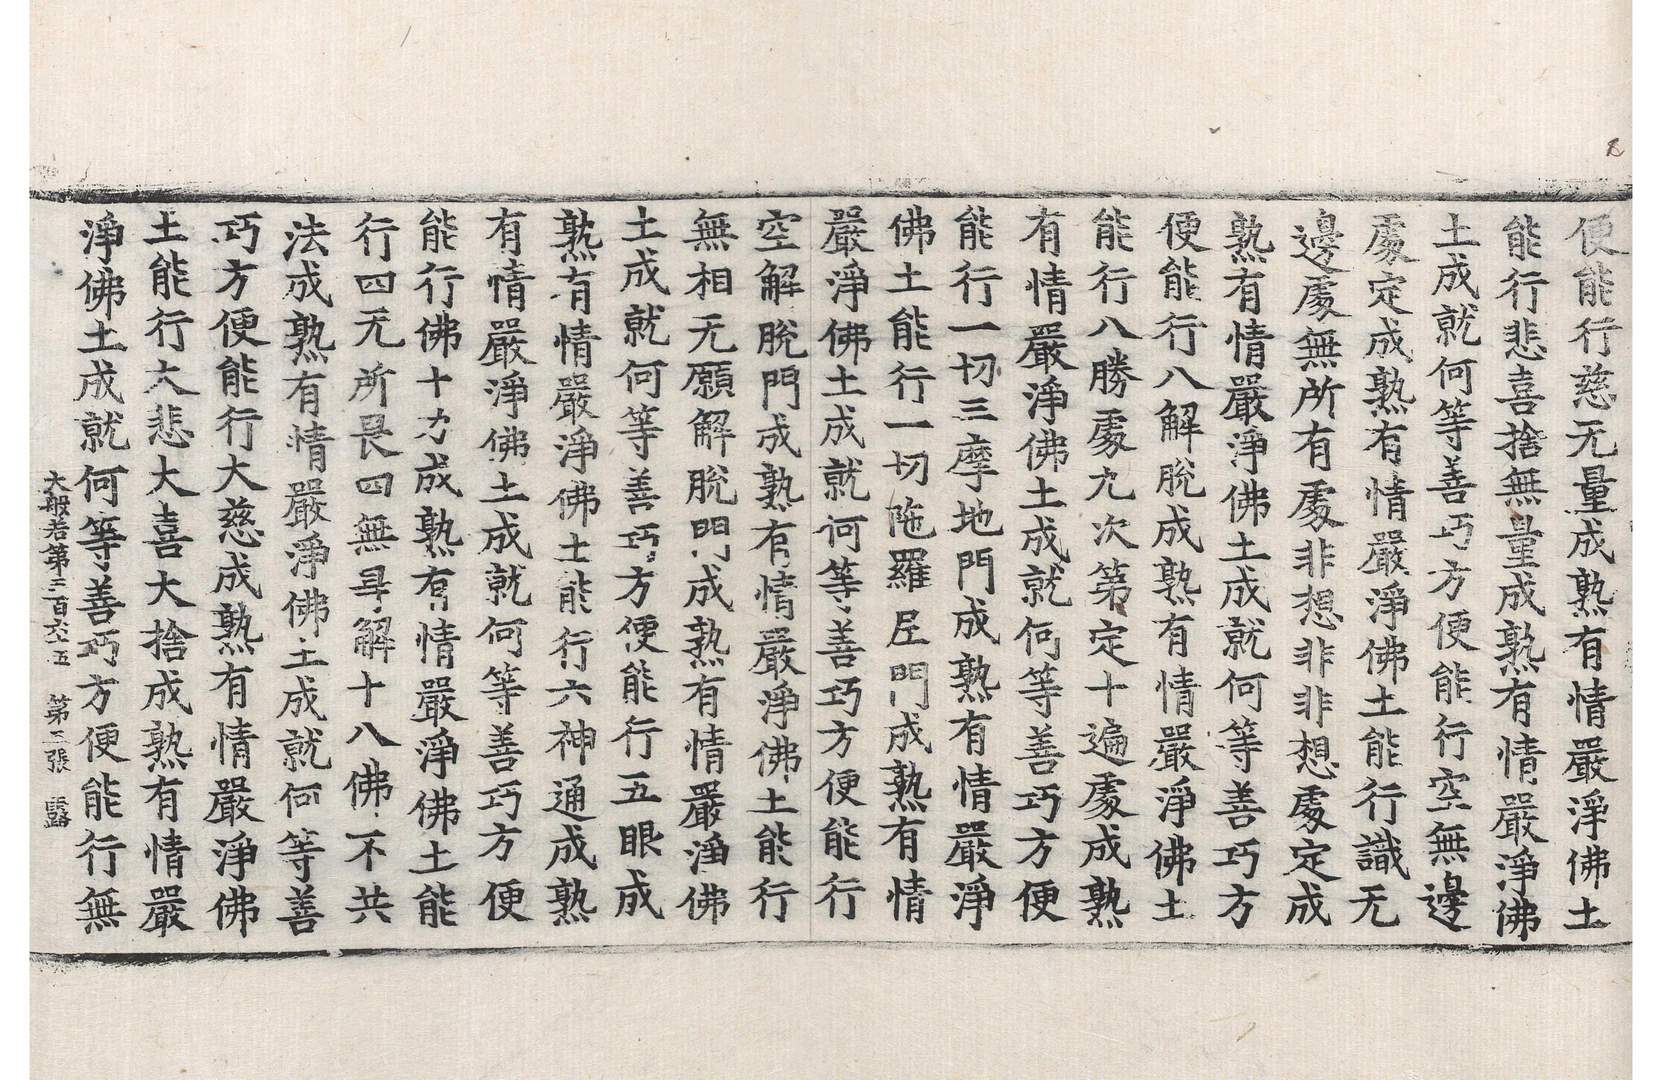 便能行慈无量成熟有情嚴淨佛土
能行悲喜捨無量成熟有情嚴淨佛
土成就何等善巧方便能行空無邊
處定成熟有情嚴淨佛土能行識无
邊處無所有處非想非非想處定成
熟有情嚴淨佛土成就何等善巧方
便能行八解脫成熟有情嚴淨佛土
能行八勝處九次第定十遍處成熟
有情嚴淨佛土成就何等善巧方便
能行一切三摩地門成熟有情嚴淨
佛土能行一切陁羅尼門成熟有情
嚴淨佛土成就何等善巧方便能行
空解脫門成熟有情嚴淨佛土能行
無相无願解脫門成熟有情嚴淨佛
土成就何等善巧方便能行五眼成
熟有情嚴淨佛土能行六神通成熟
有情嚴淨佛土成就何等善巧方便
能行佛十力成熟有情嚴淨佛土能
行四无所畏四無㝵解十八佛不共
法成熟有情嚴淨佛土成就何等善
巧方便能行大慈成熟有情嚴淨佛
土能行大悲大喜大捨成熟有情嚴
淨佛土成就何等善巧方便能行無
大般若第三百六十五 第三張 露